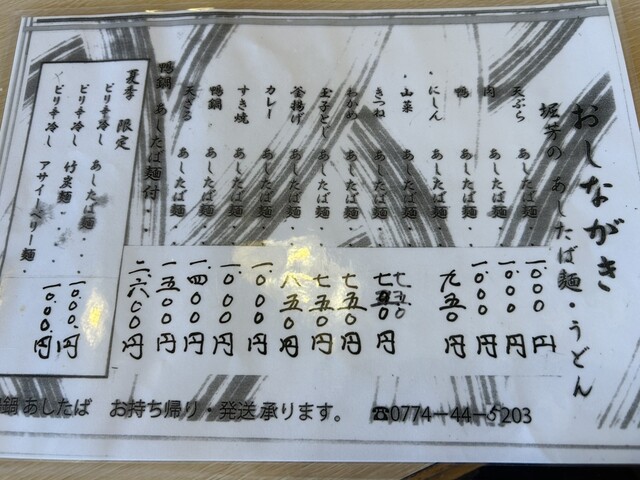 おしながき
堀芳の あしたば麺・うどん
天ぷら あしたば麺・・一〇〇〇円
肉 あしたば麺・・一〇〇〇円
鴨 あしたば麺・・一〇〇〇円
・にしん あしたば麺・・九五〇円
・山菜 あしたば麺・・七五〇円
きつね あしたば麺・・七五〇円
わかめ あしたば麺・・七五〇円
玉子とじ あしたば麺・・七五〇円
釜揚げ あしたば麺・・八五〇円
カレー あしたば麺・・一〇〇〇円
すき焼 あしたば麺・・一〇〇〇円
鴨鍋 あしたば麺・・一四〇〇円
天ざる あしたば麺・・一五〇〇円
鴨鍋 あしたば麺付・・二六〇〇円
夏季 限定
ピリ辛冷し あしたば麺・・・
ピリ辛冷し 竹炭麺・・・一〇〇〇円
ピリ辛冷し アサイーベリー麺・一〇〇〇円
鍋 あしたば お持ち帰り・発送承ります。 ☎0774-44-5203